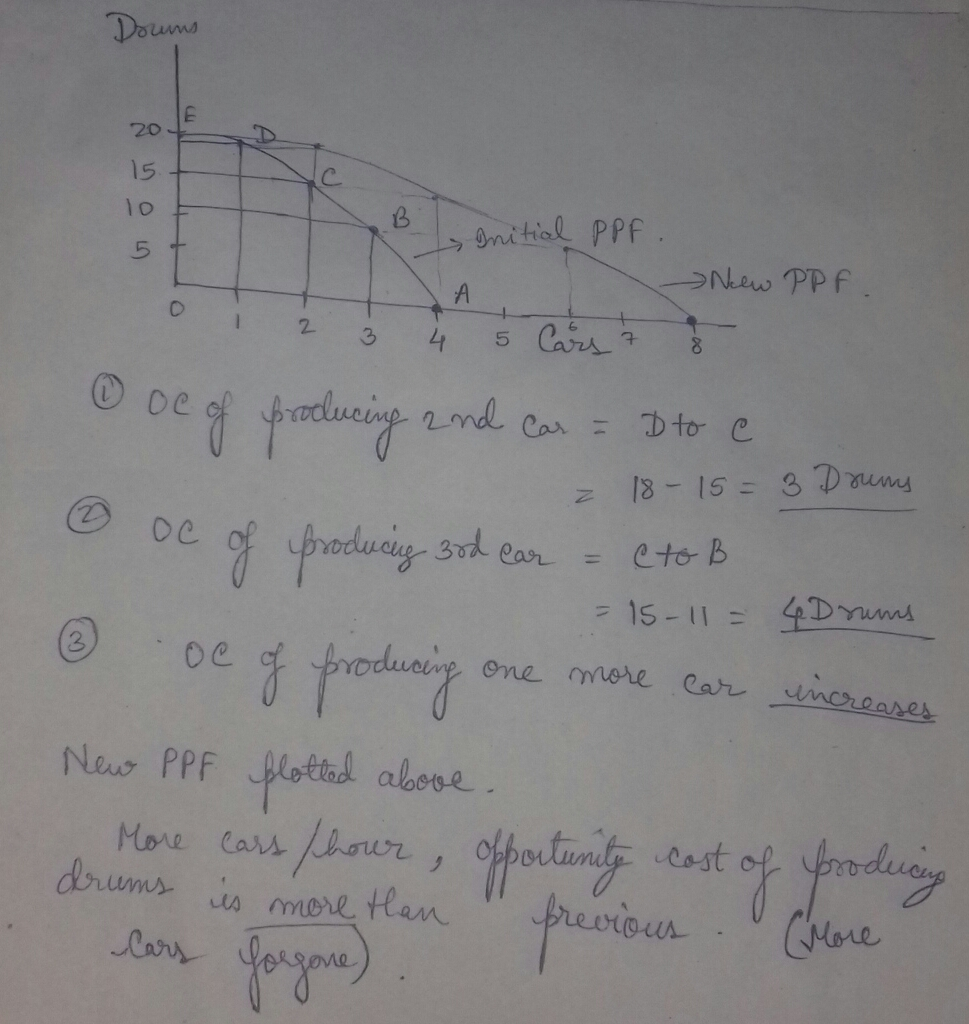 Drums
E
20
D
15
C
10
B
5
→ Initial PPF.
→ New PPF.
A
0
1 2 3 4 5 6 7 8
Cars
① OC of producing 2nd Car = D to C
= 18 - 15 = 3 Drums
② OC of producing 3rd Car = C to B
= 15 - 11 = 4 Drums
③ OC of producing one more car increases
New PPF plotted above.
More cars/hour, opportunity cost of producing
drums is more than previous. (More
Cars forgone).